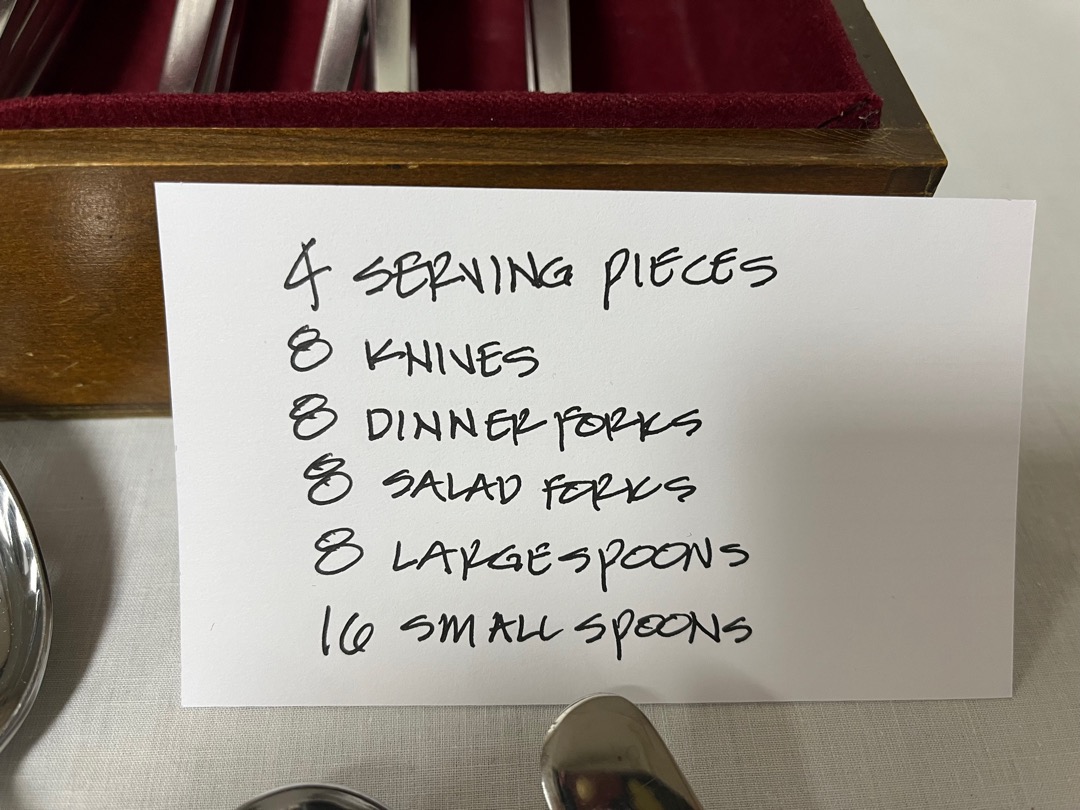 4 SERVING PIECES
8 KNIVES
8 DINNER FORKS
8 SALAD FORKS
8 LARGE SPOONS
16 SMALL SPOONS